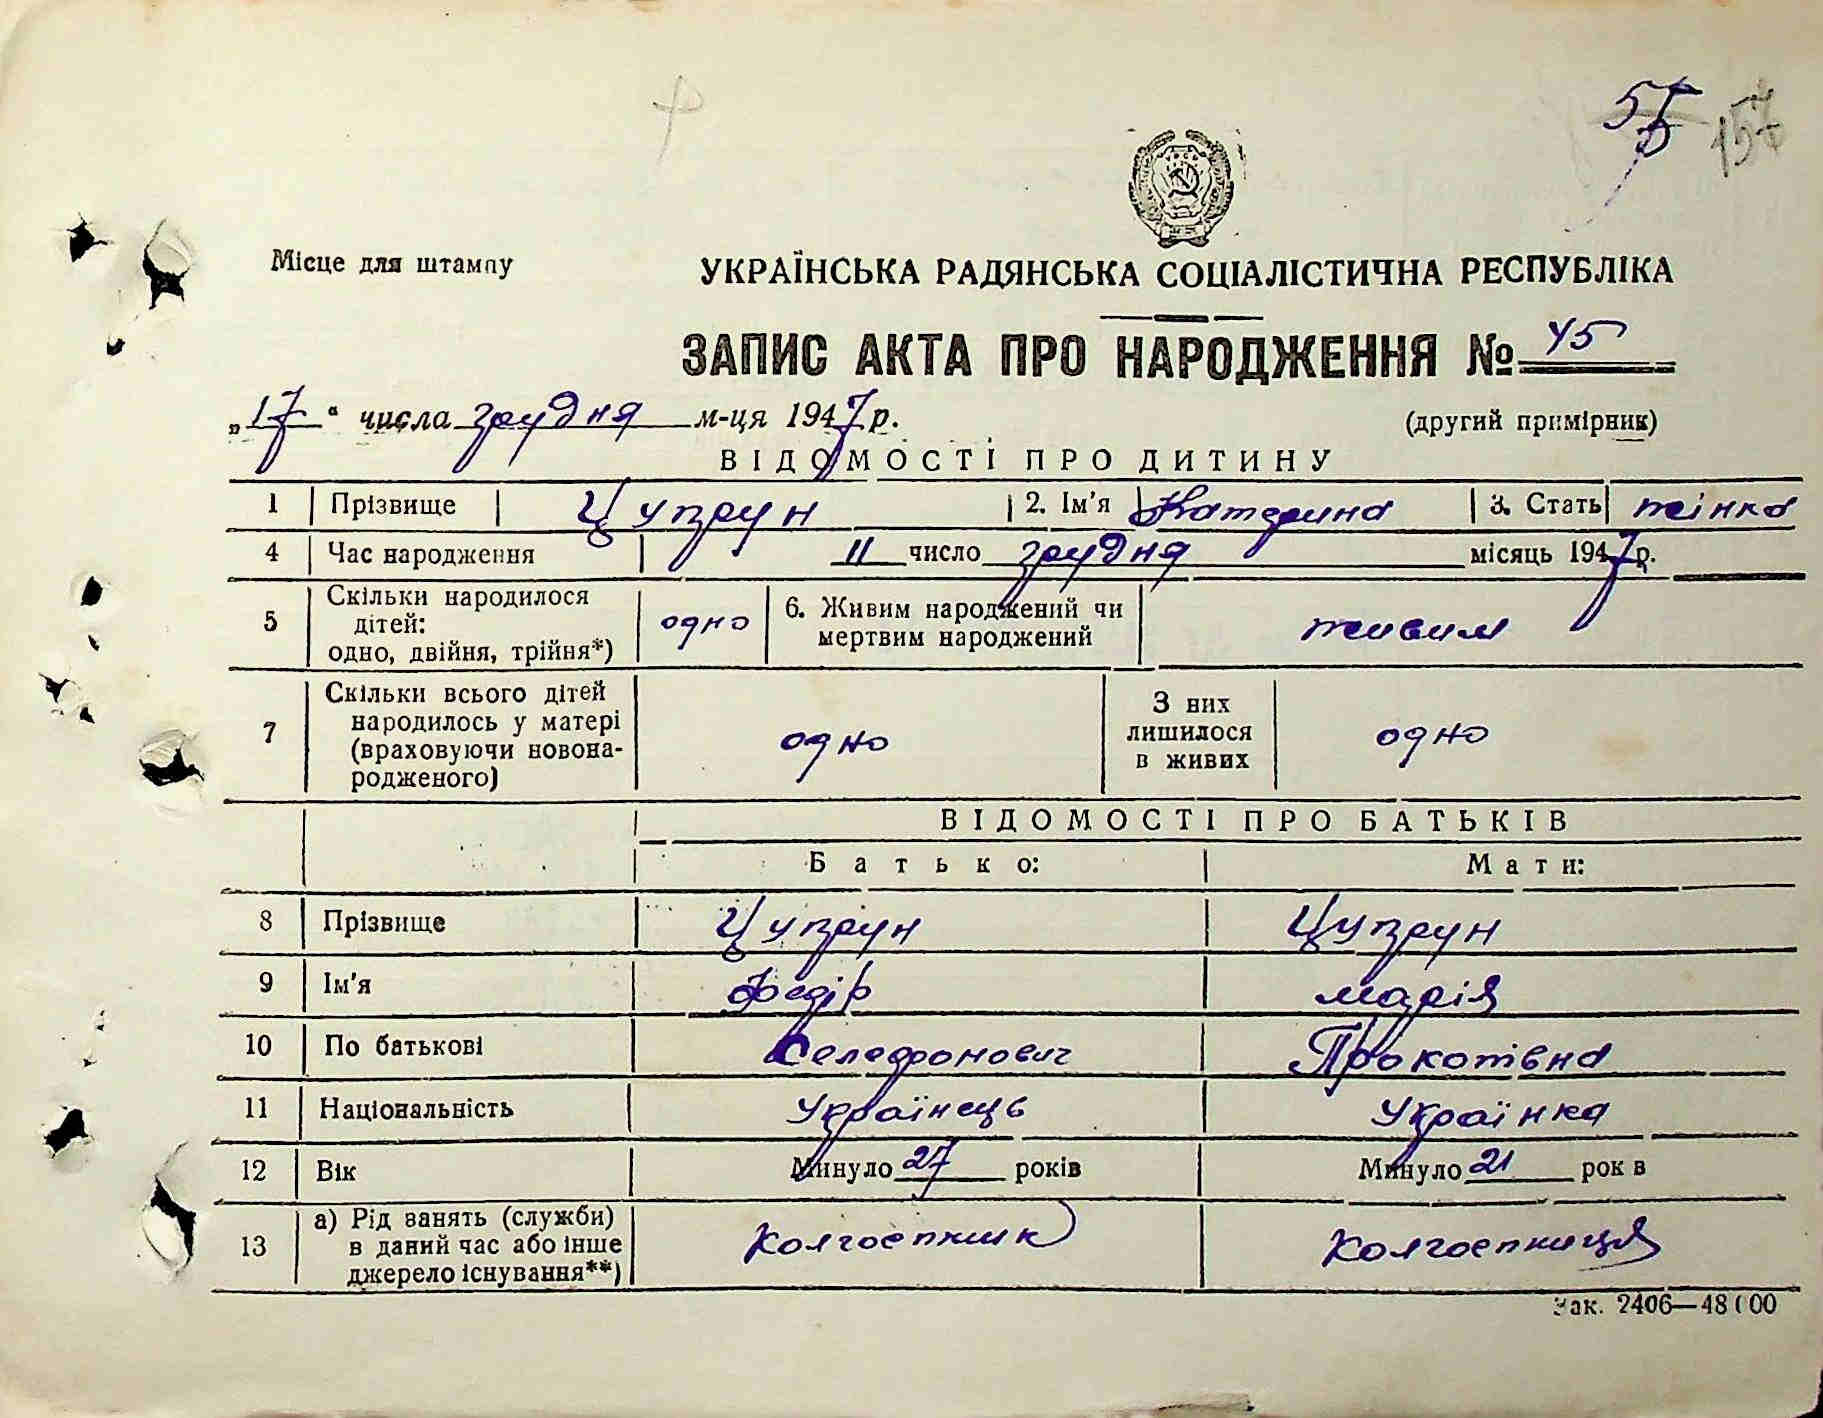 157
Місце для штампу
УКРАЇНСЬКА РАДЯНСЬКА СОЦІАЛІСТИЧНА РЕСПУБЛІКА
ЗАПИС АКТА ПРО НАРОДЖЕННЯ № 45
„17“ числа грудня м-ця 1947 р.
(другий примірник)
ВІДОМОСТІ ПРО ДИТИНУ
1 Прізвище Цупрун 2. Ім'я Катерина 3. Стать жінка
4 Час народження 11 число грудня місяць 1947 р.
5 Скільки народилося дітей: одно, двійня, трійня*) одно 6. Живим народжений чи мертвим народжений живим
7 Скільки всього дітей народилось у матері (враховуючи новонародженого) одно З них лишилося в живих одно
ВІДОМОСТІ ПРО БАТЬКІВ
Батько: Мати:
8 Прізвище Цупрун Цупрун
9 Ім'я Федір Марія
10 По батькові Селефронович Прокопівна
11 Національність Українець Українка
12 Вік Минуло 27 років Минуло 21 рок в
13 а) Рід занять (служби) в даний час або інше джерело існування**) Колгоспник Колгоспниця
Зак. 2406—48000